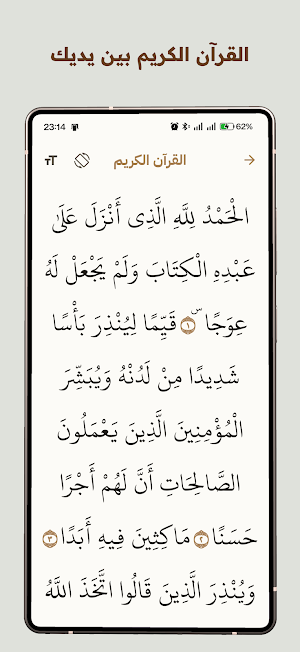 القرآن الكريم بين يديك
23:14 62%
القرآن الكريم
الْحَمْدُ لِلَّهِ الَّذِى أَنْزَلَ عَلَىٰ
عَبْدِهِ الْكِتَابَ وَلَمْ يَجْعَلْ لَهُ
عِوَجًا ۜ ١ قَيِّمًا لِيُنْذِرَ بَأْسًا
شَدِيدًا مِنْ لَدُنْهُ وَيُبَشِّرَ
الْمُؤْمِنِينَ الَّذِينَ يَعْمَلُونَ
الصَّالِحَاتِ أَنَّ لَهُمْ أَجْرًا
حَسَنًا ٢ مَاكِثِينَ فِيهِ أَبَدًا ٣
وَيُنْذِرَ الَّذِينَ قَالُوا اتَّخَذَ اللَّهُ